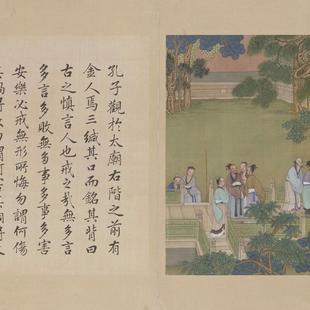 孔子觀於太廟右階之前有
金人焉三緘其口而銘其背曰
古之慎言人也戒之哉無多言
多言多敗無多事多事多害
安樂必戒無形所悔勿謂何傷